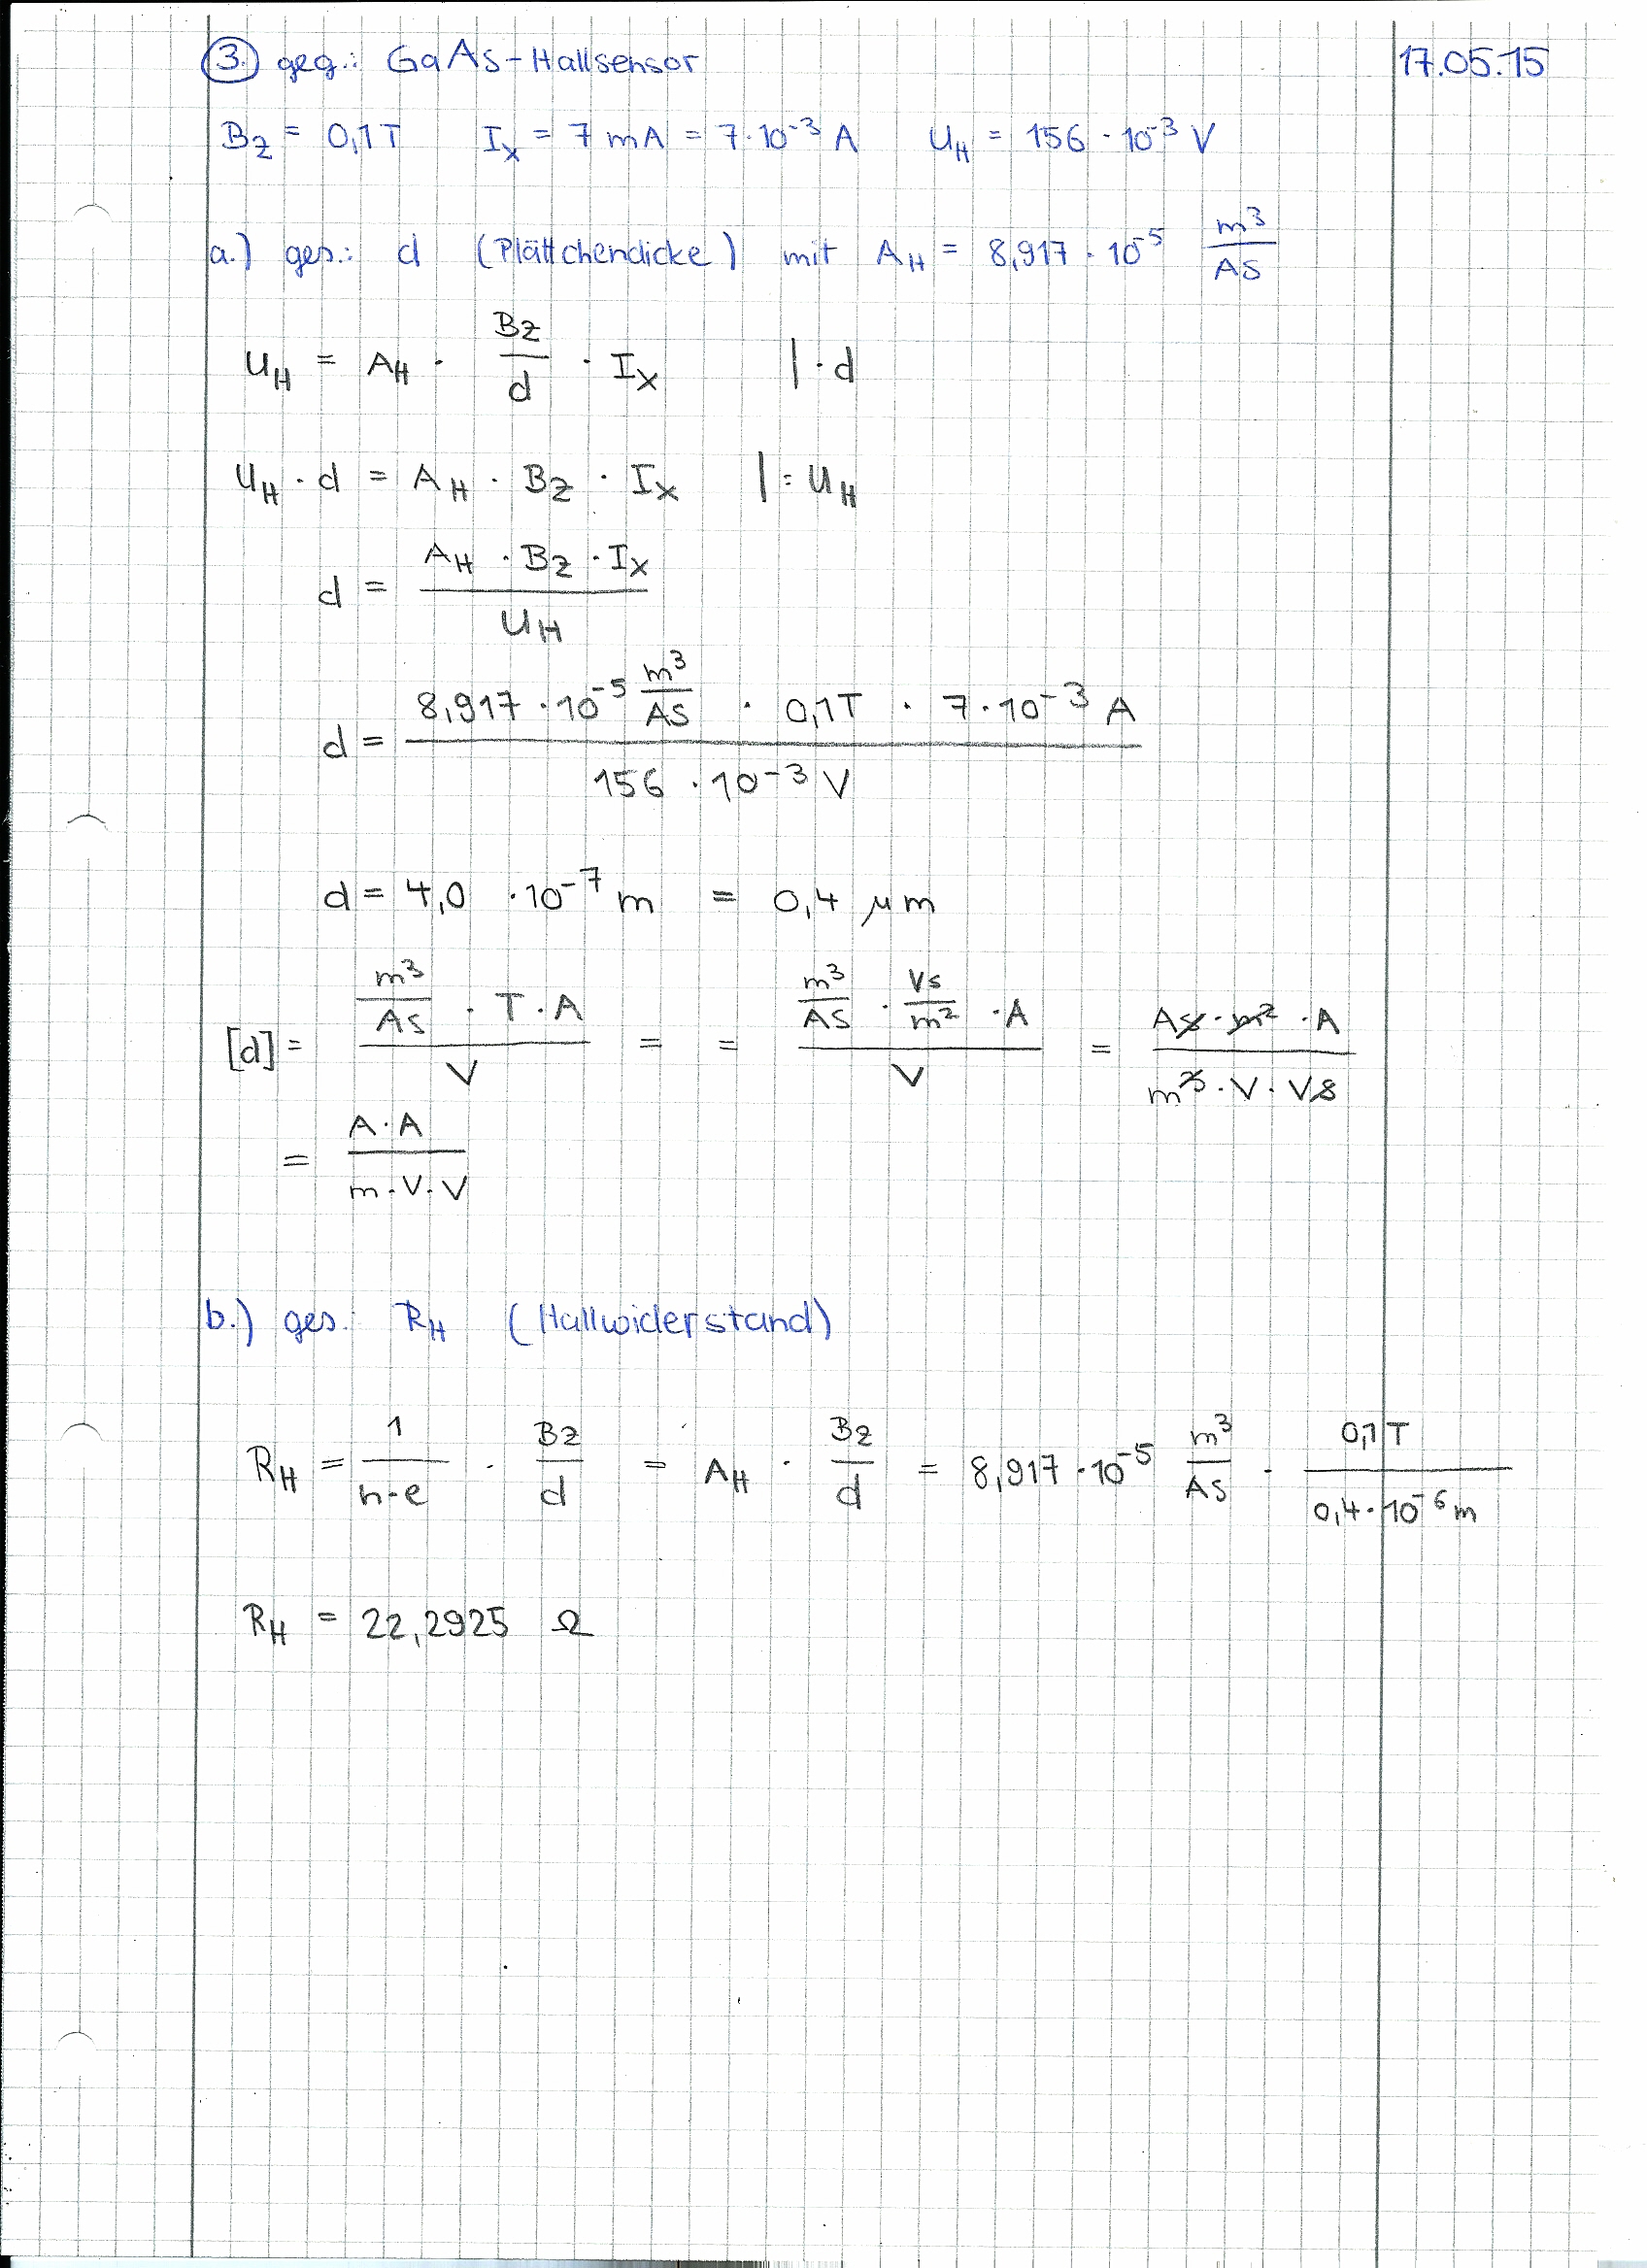 3. geg.: GaAs-Hallsensor 17.05.15
B_z = 0,1T I_x = 7 mA = 7·10^-3 A U_H = 156·10^-3 V
a.) ges.: d (Plättchendicke) mit A_H = 8,917·10^-5 m^3/AS
U_H = A_H · B_z/d · I_x |·d
U_H · d = A_H · B_z · I_x |: U_H
d = (A_H · B_z · I_x)/U_H
d = (8,917·10^-5 m^3/AS · 0,1T · 7·10^-3 A)/(156·10^-3 V)
d = 4,0 ·10^-7 m = 0,4 µm
[d] = (m^3/AS · T·A)/V = = (m^3/AS · Vs/m^2 · A)/V = (As·m^2·A)/(m^3·V·Vs)
= (A·A)/(m·V·V)
b.) ges. R_H (Hallwiderstand)
R_H = 1/(n·e) · B_z/d = A_H · B_z/d = 8,917·10^-5 m^3/AS · 0,1T/(0,4·10^-6 m)
R_H = 22,2925 Ω